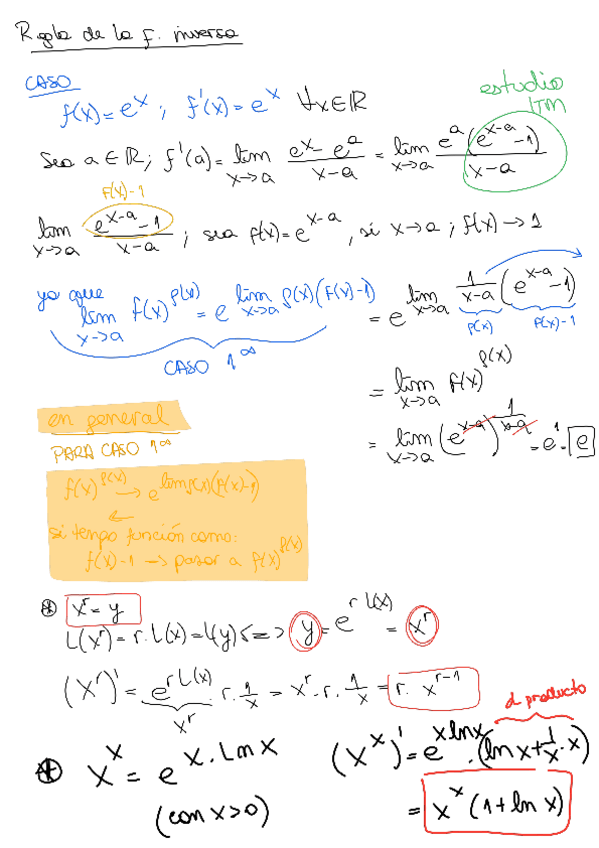 Regla de la f. inversa
CASO
f(x) = e^x ; f'(x) = e^x ∀x∈ℝ
estudio
ITM
Sea a ∈ ℝ ; f'(a) = lim x→a (e^x - e^a)/(x-a) = lim x→a e^a(e^(x-a) - 1)/(x-a)
f(x)-1
lim x→a (e^(x-a) - 1)/(x-a) ; sea f(x) = e^(x-a), si x→a ; f(x)→1
ya que
lim x→a f(x)^g(x) = e^(lim x→a g(x)(f(x)-1))
CASO 1^∞
= e^(lim x→a 1/(x-a) (e^(x-a) - 1))
g(x) f(x)-1
= lim x→a f(x)^g(x)
= lim x→a (e^(x-a))^(1/(x-a)) = e^1 = e
en general
PARA CASO 1^∞
f(x)^g(x) → e^(lim g(x)(f(x)-1))
←
si tengo función como:
f(x)-1 → pasar a f(x)^g(x)
⊛ x^r = y
L(x^r) = r·L(x) = L(y) <=> y = e^(r L(x)) = x^r
(x^r)' = e^(r L(x)) · r · 1/x = x^r · r · 1/x = r · x^(r-1)
x^r
d producto
⊛ x^x = e^(x·Ln x) (x^x)' = e^(x ln x) · (ln x + 1/x · x)
(con x>0) = x^x (1 + ln x)